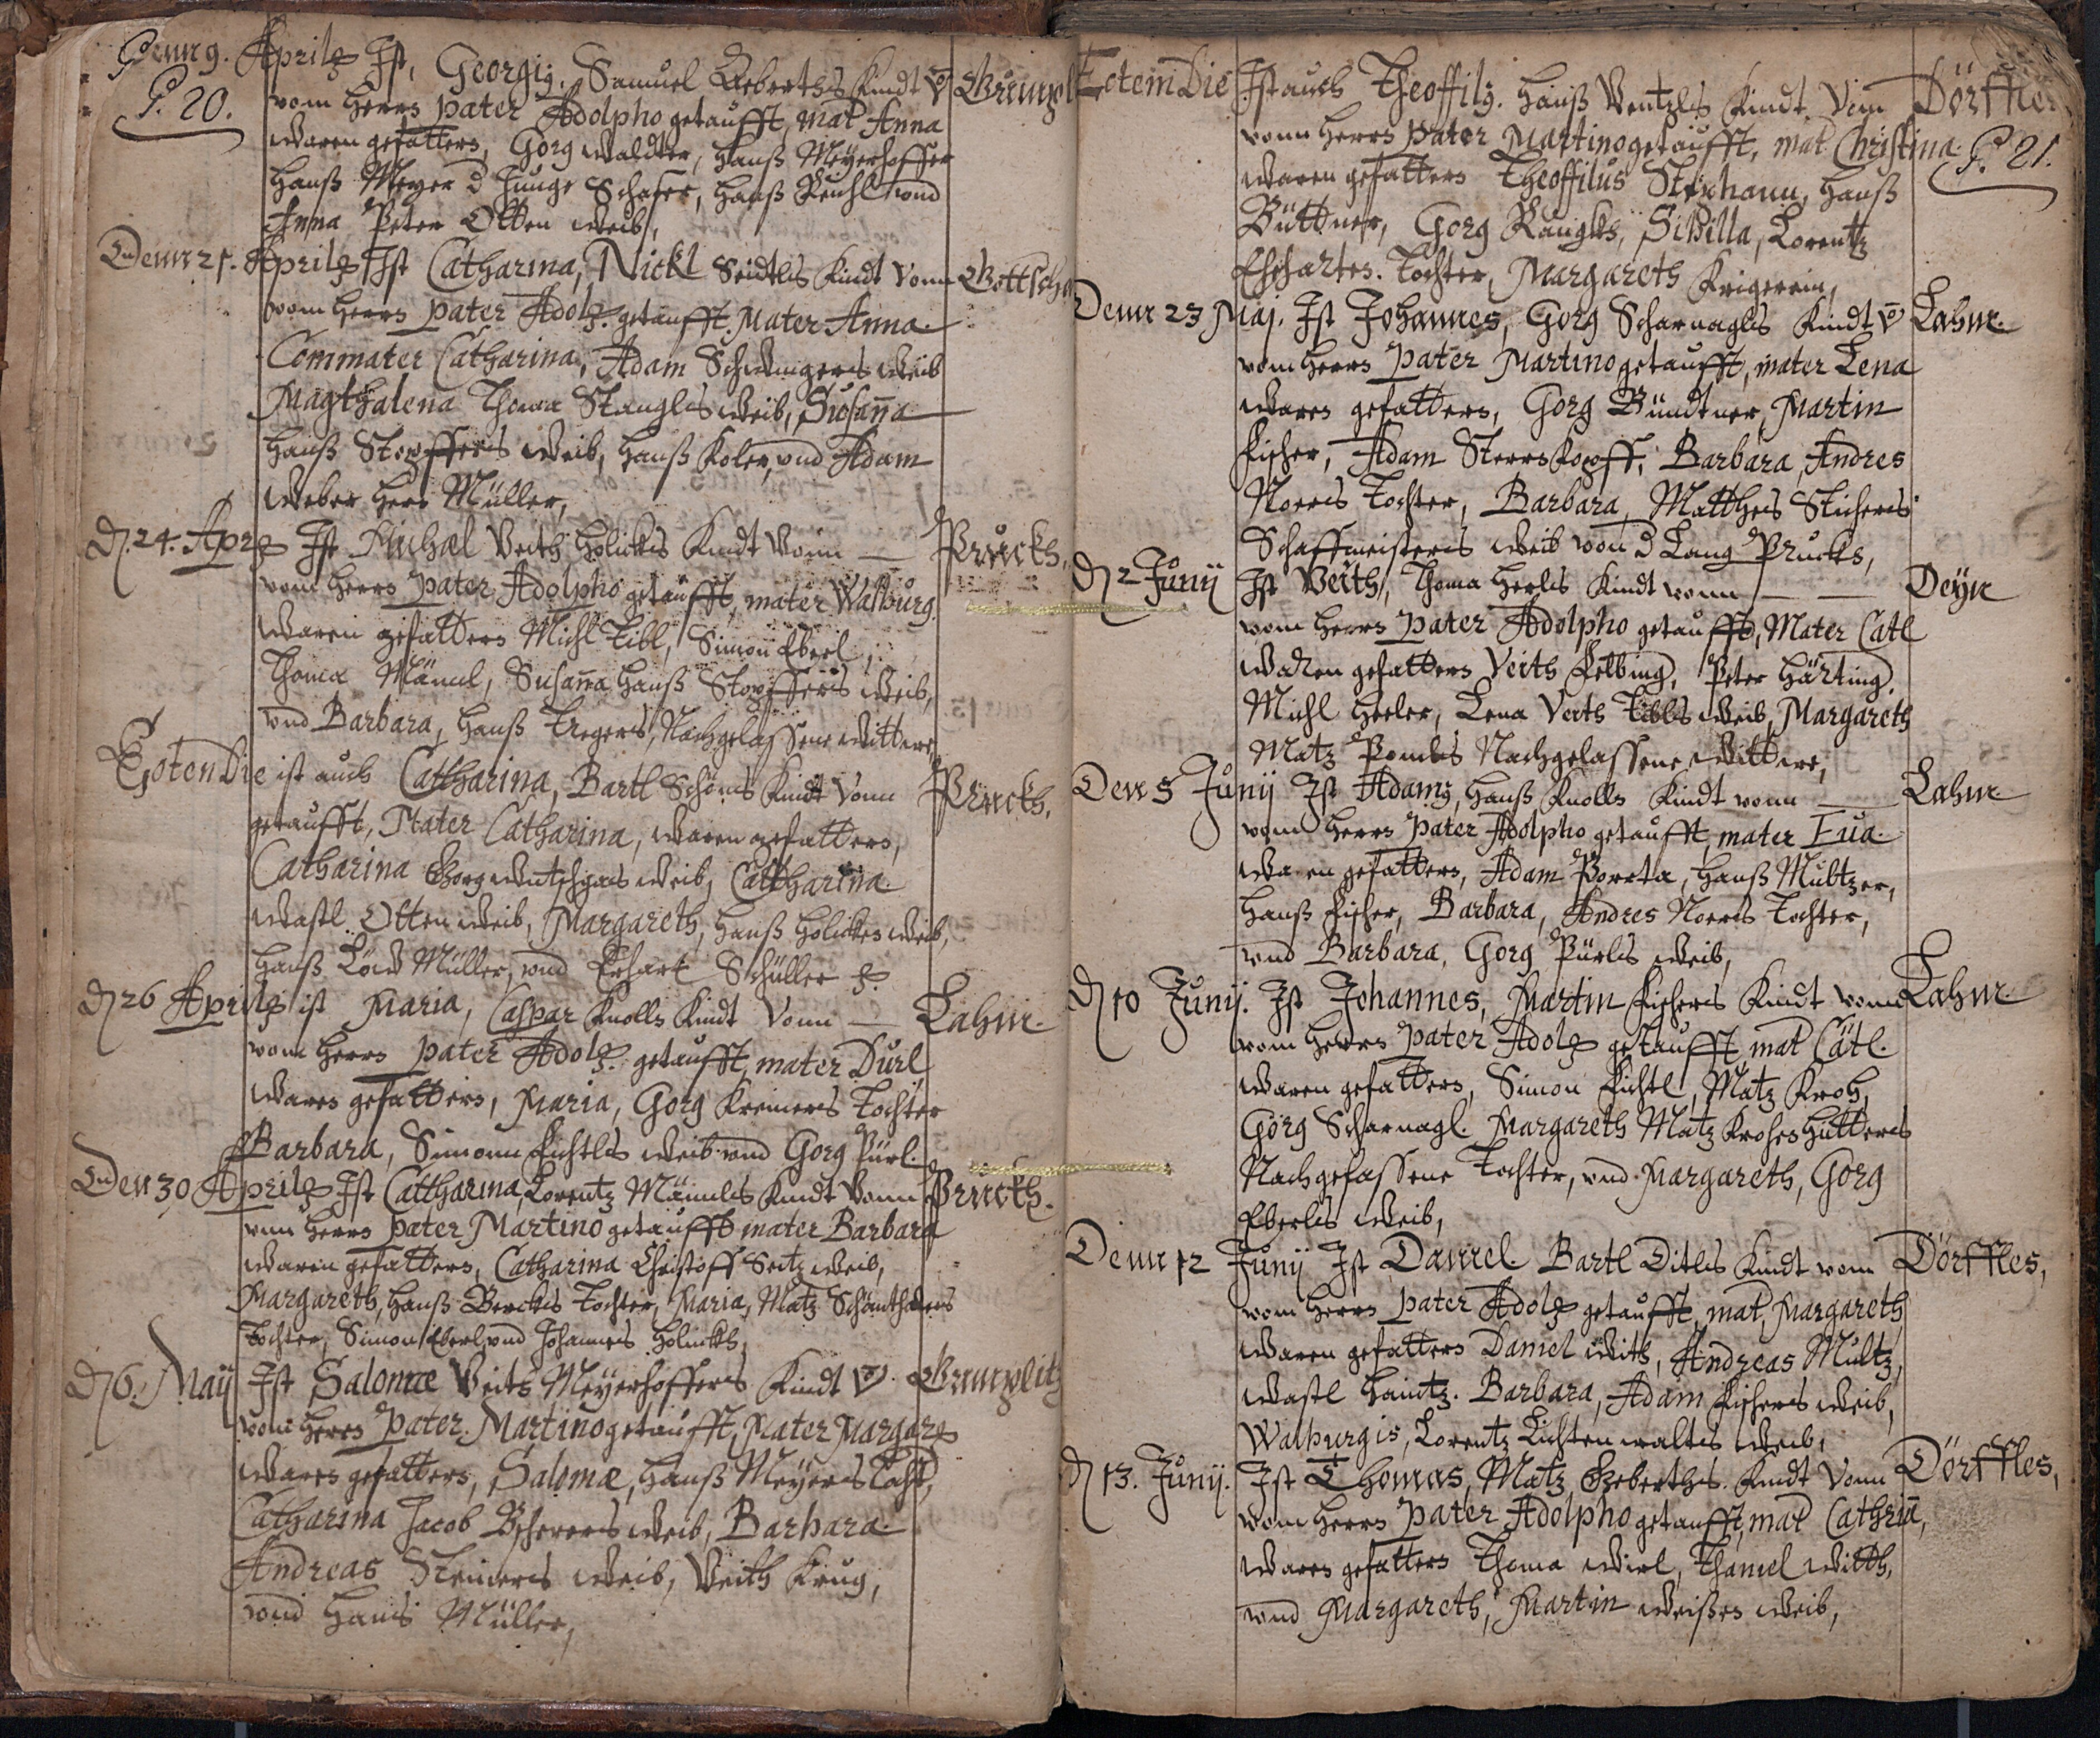 Denn 9. Aprilis Ist, Georgig. Samuel Geberths Kindt vo Grunpl
P. 20.
vom Herrn pater Adolpho getaufft, mat Anna
Waren gefattern, Görg Waldter, Hanß Meÿerhoffer
Hanß Meyer d Junge Schafer, Hanß Reichl vnd
Anna Peter Otten Weib,
Denn 21. Aprilis Ist Catharina, Nickl Seidtls Kindt Vonn Gottscha
vom Herrn pater Adolp. getaufft. Mater Anna.
Commater Catharina, Adam Schwingers Weib
Magthalena Thoma Stangls Weib, Susanna
Hanß Stopffers Weib, Hanß Koler, vnd Adam
Weber Herr Müller,
dn 24. Apr Ist Michael Veith Holickis Kindt Vonn — Prucks.
vom Herrn pater Adolpho getaufft, mater Walburg.
Waren gefattern Michl Tibl, Simon Eberl,
Thoma Männl, Susanna Hanß Stopffers Weib,
vnd Barbara, Hanß Tregers, Nachgelassene Wittwe,
Eoten Die ist auch Catharina, Bartl Schöns Kindt Vonn Pruckh.
getaufft, Mater Catharina, Waren gefattern,
Catharina Georg Weib, Catharina
Wastl Otten Weib, Margareth, Hanß Holickes Weib,
Hanß Löw Müller, vnd Erhart Schüller
dn 26 Aprilis ist Maria, Caspar Knolls Kindt Vonn — Lahm.
vom Herrn pater Adolp. getaufft, mater Dürl
Waren gefattern, Maria, Görg Kremers Tochter
Barbara, Simonn Fichtls Weib vnd Görg Pürl.
Den 30 Aprilis Ist Catharina, Lorentz Männls Kindt Vonn Pruckh.
vom Herrn pater Martino getaufft mater Barbara
Waren gefattern, Catharina Christoff Seitz Weib,
Margareth, Hanß Berckis Tochter, Maria, Matz Schönthalers
Tochter, Simon Eberl, vnd Johannes Holickh,
dn 6. Maÿ Ist Salomæ Veits Meÿerhoffers Kindt vo. Grunplitz
vom Herrn pater Martino getaufft, Mater Margare
Waren gefattern, Salomæ, Hanß Meÿers Tocht,
Catharina Jacob Weib, Barbara
Andreas Steiners Weib, Veith Krug,
vnd Hans Müller,
Eotem Die Ist auch Theoffilg. Hanß Wentzls Kindt Vonn Dörffles
vonn Herrn pater Martino getaufft, mat Christina.
P. 21.
Waren gefattern Theoffilus Stephann, Hanß
Büttner, Görg Rangks, Sibilla, Lorentz
Tochter, Margareth Krigerin,
Denn 23 Maj. Ist Johannes, Görg Scharnagls Kindt vo Lahm.
vom Herrn pater Martino getaufft, mater Lena
Waren gefattern, Görg Bündtner, Martin
Fischer, Adam Sternkopff, Barbara Andres
Norris Tochter, Barbara, Matthes Stichers
Schaffmeisters Weib von d Lang Prucks,
dn 2 Junÿ Ist Veith, Thoma Herls Kindt vonn — — Deÿn
vom Herrn pater Adolpho getaufft, Mater Catl
Waren gefattern Veith Helbing, Peter Härting,
Michl Herler, Lena Veits Tibls Weib, Margareth
Matz Nachgelassene Wittwe,
Den 5 Junÿ Ist Adamg, Hanß Knolls Kindt vonn — Lahm
vom Herrn pater Adolpho getaufft, mater Eua.
Waren gefattern, Adam Porrta, Hanß Multzer,
Hanß Fischer, Barbara, Andres Norris Tochter,
vnd Barbara, Görg Pürls Weib,
dn 10 Junÿ. Ist Johannes, Martin Fischers Kindt vonn Lahm.
vom Herrn pater Adolp getaufft mat Cätl.
Waren gefattern, Simon Fichtl, Matz Kroh,
Görg Scharnagl. Margareth Matz Krohes Hütters
Nachgelassene Tochter, vnd Margareth, Görg
Eberls Weib,
Denn 12 Junÿ Ist Daniel Bartl Ditls Kindt vonn Dörffles,
vom Herrn pater Adolp getaufft, mat, Margareth
Waren gefattern Daniel With, Andreas Multz,
Wastl Haintz. Barbara, Adam Fischers Weib,
Walburgis, Lorentz Lichtenwalts Weib,
dn 13. Junÿ. Ist Thomas, Matz Geberths. Kindt Vonn Dörffles,
vom Herrn pater Adolpho getaufft, mat Cathrin,
Waren gefattern Thoma Wirl, Thaniel With,
vnd Margareth, Martin Weißen Weib,